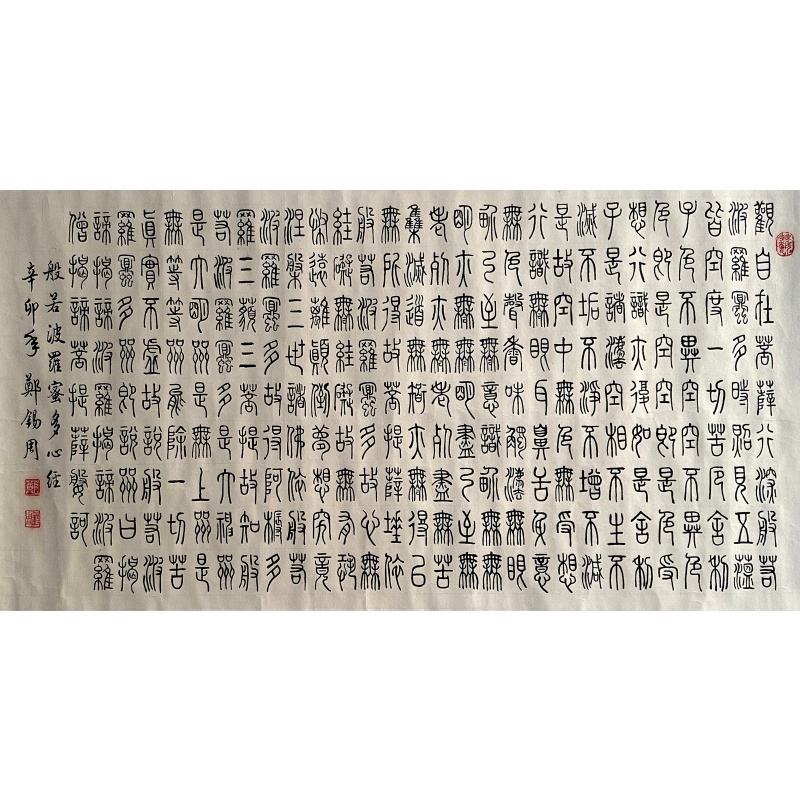 觀自在菩薩行深般若
波羅蜜多時照見五蘊
皆空度一切苦厄舍利
子色不異空空不異色
色即是空空即是色受
想行識亦復如是舍利
子是諸法空相不生不
滅不垢不淨不增不減
是故空中無色無受想
行識無眼耳鼻舌身意
無色聲香味觸法無眼
界乃至無意識界無無
明亦無無明盡乃至無
老死亦無老死盡無苦
集滅道無智亦無得以
無所得故菩提薩埵依
般若波羅蜜多故心無
罣礙無罣礙故無有恐
怖遠離顛倒夢想究竟
涅槃三世諸佛依般若
波羅蜜多故得阿耨多
羅三藐三菩提故知般
若波羅蜜多是大神咒
是大明咒是無上咒是
無等等咒能除一切苦
真實不虛故說般若波
羅蜜多咒即說咒曰揭
諦揭諦波羅揭諦波羅
僧揭諦菩提薩婆訶
般若波羅蜜多心經
辛卯年 鄭錫周